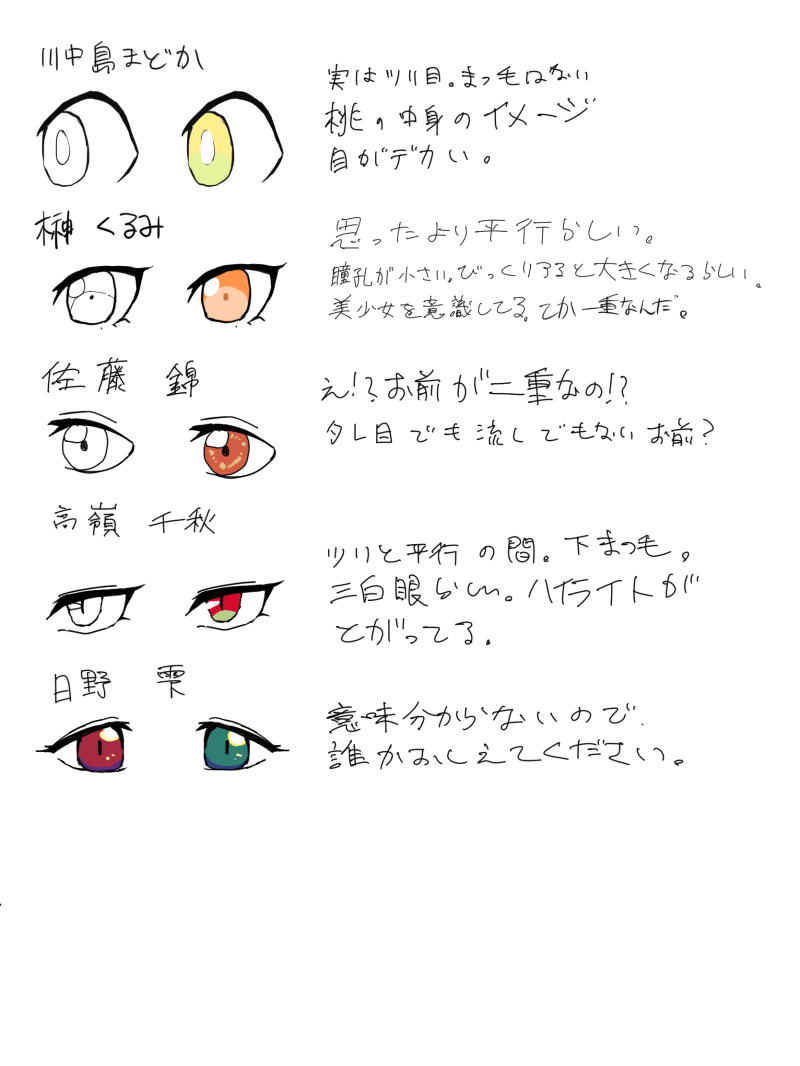 川中島まどか
実はツリ目。まつ毛はない
桃の中身のイメージ
目がデカい。
榊くるみ
思ったより平行らしい。
瞳孔が小さい。びっくりすると大きくなるらしい。
美少女を意識してる。てか一重なんだ。
佐藤 錦
え!?お前が二重なの!?
タレ目でも流しでもないお前?
高嶺 千秋
ツリと平行の間。下まつ毛。
三白眼らしい。ハイライトが
とがってる。
日野 雫
意味分からないので
誰かおしえてください。